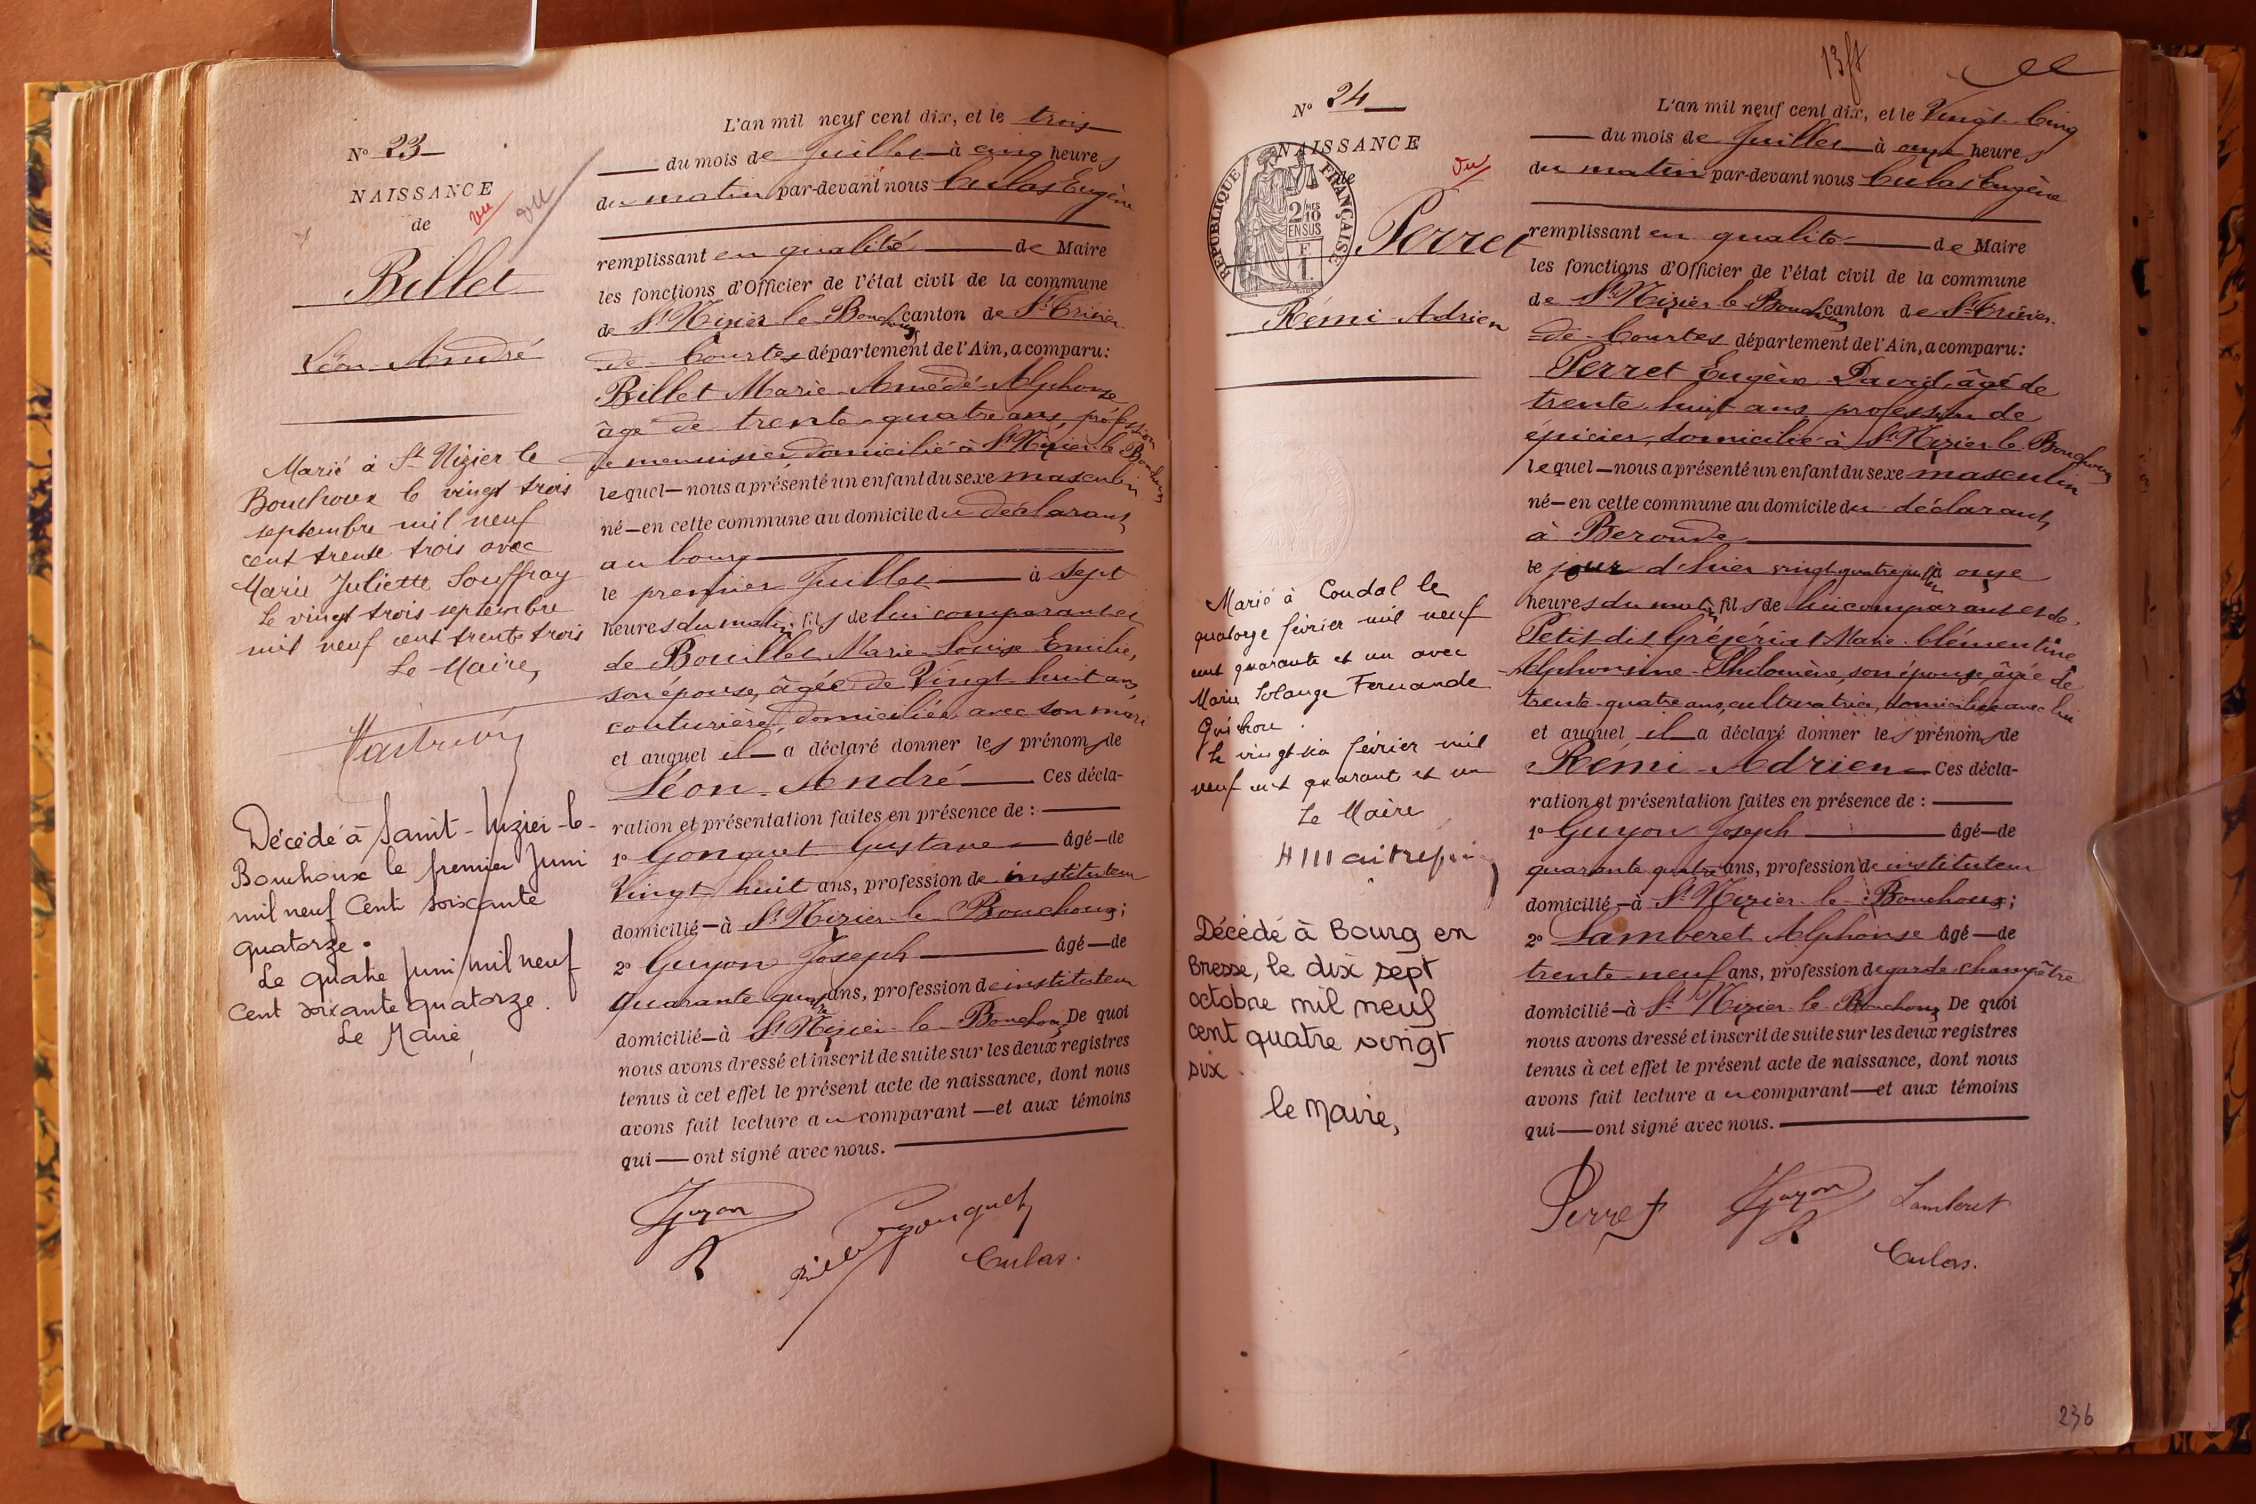 N° 23
NAISSANCE
de
vu
vu
Billet
Léon André
Marié à St Nizier le
Bouchoux le vingt trois
septembre mil neuf
cent trente trois avec
Marie Juliette Souffray
Le vingt trois septembre
mil neuf cent trente trois
Le Maire,
Décédé à Saint-Nizier-le-
Bouchoux le premier Juin
mil neuf Cent soixante
quatorze.
Le quatre Juin mil neuf
cent soixante quatorze.
Le Maire
L'an mil neuf cent dix, et le trois
du mois de Juillet à cinq heures
du matin par-devant nous Culas Eugène
remplissant en qualité de Maire
les fonctions d'Officier de l'état civil de la commune
de St Nizier le Bouchoux canton de St Trivier
de Courtes département de l'Ain, a comparu:
Billet Marie Amédé Alphonse
âgé de trente quatre ans, profession
de menuisier domicilié à St Nizier le Bouchoux
lequel nous a présenté un enfant du sexe masculin
né en cette commune au domicile du déclarant,
au bourg
le premier Juillet à sept
heures du matin fils de lui comparant et
de Bouillet Marie Louise Emilie,
son épouse, âgée de Vingt huit ans
couturière, domiciliée avec son mari
et auquel il a déclaré donner les prénoms de
Léon André Ces décla-
ration et présentation faites en présence de :
1° Gonguet Gustave âgé de
Vingt huit ans, profession de instituteur
domicilié à St Nizier le Bouchoux;
2° Guyon Joseph âgé de
quarante quatre ans, profession de instituteur
domicilié à St Nizier le Bouchoux De quoi
nous avons dressé et inscrit de suite sur les deux registres
tenus à cet effet le présent acte de naissance, dont nous
avons fait lecture au comparant et aux témoins
qui ont signé avec nous.
Guyon
Billet Gonguet
Culas.
13 ft
N° 24
NAISSANCE
de
vu
RÉPUBLIQUE FRANÇAISE
2/10 MES
EN SUS
F
1.
Perret
Rémi Adrien
Marié à Condal le
quatorze février mil neuf
cent quarante et un avec
Marie Solange Fernande
Le vingt six février mil
neuf cent quarante et un
Le Maire
Décédé à Bourg en
Bresse, le dix sept
octobre mil neuf
cent quatre vingt
six.
le Maire,
L'an mil neuf cent dix, et le Vingt Cinq
du mois de Juillet à onze heures
du matin par-devant nous Culas Eugène
remplissant en qualité de Maire
les fonctions d'Officier de l'état civil de la commune
de St Nizier le Bouchoux canton de St Trivier
de Courtes département de l'Ain, a comparu:
Perret Eugène David, âgé de
trente huit ans profession de
épicier, domicilié à St Nizier le Bouchoux
lequel nous a présenté un enfant du sexe masculin
né en cette commune au domicile du déclarant,
à Beronde
le jour d'hier vingt quatre juillet à onze
heures du matin fils de lui comparant et de
Petit dit Grézériat Marie Clémentine
Alphonsine Philomène, son épouse, âgée de
trente quatre ans, cultivatrice, domiciliée avec lui
et auquel il a déclaré donner les prénoms de
Rémi Adrien Ces décla-
ration et présentation faites en présence de :
1° Guyon Joseph âgé de
quarante quatre ans, profession de instituteur
domicilié à St Nizier le Bouchoux;
2° Lamberet Alphonse âgé de
trente neuf ans, profession de garde champêtre
domicilié à St Nizier le Bouchoux De quoi
nous avons dressé et inscrit de suite sur les deux registres
tenus à cet effet le présent acte de naissance, dont nous
avons fait lecture au comparant et aux témoins
qui ont signé avec nous.
Perret Guyon Lamberet
Culas.
236